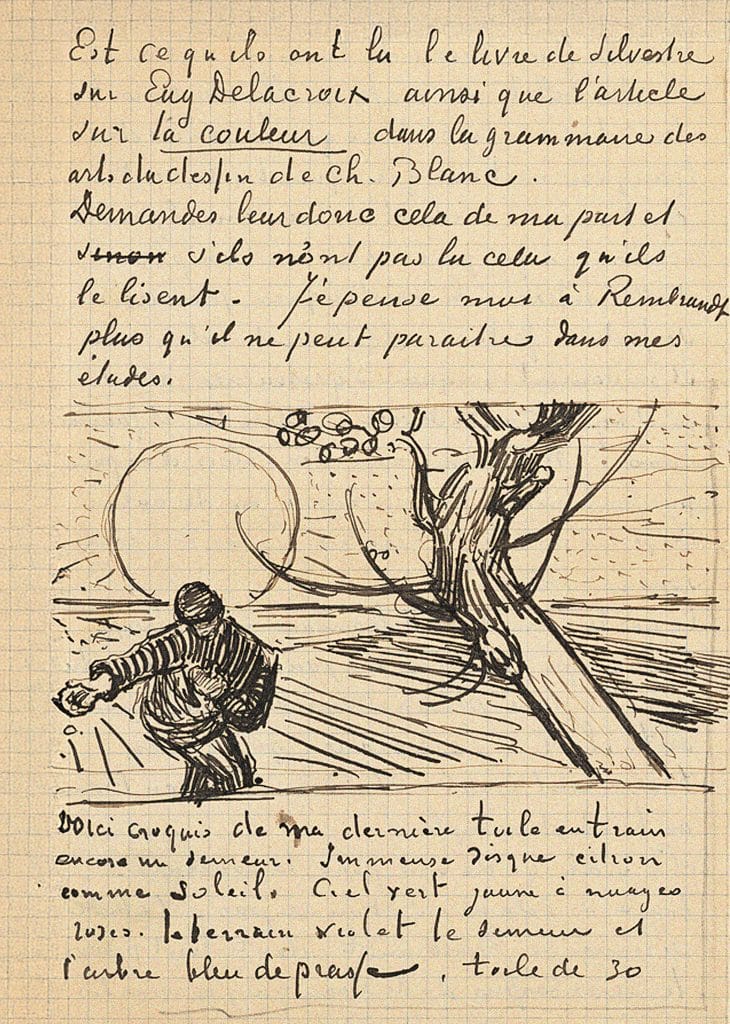 Est ce qu'ils ont lu le livre de Silvestre
sur Eug Delacroix ainsi que l'article
sur la couleur dans la grammaire des
arts du dessin de Ch. Blanc.
Demandes leur donc cela de ma part et
sinon s'ils n'ont pas lu cela qu'ils
le lisent. J'epense moi à Rembrandt
plus qu'il ne peut paraitre dans mes
études.
Voici croquis de ma dernière toile en train
encore un semeur. Immense disque citron
comme soleil. Ciel vert jaune à nuages
roses. le terrain violet le semeur et
l'arbre bleu de prusse, toile de 30